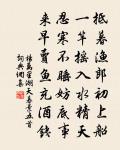 抵暮漁郎初上船
一竿搖入水精天
忍寒不睡妨底事
來早賣魚充酒錢
楊萬里湖天暮景五首
詞典網集